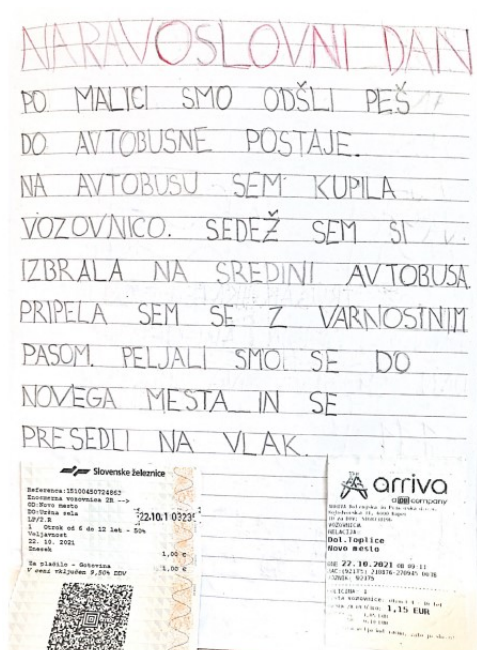 NARAVOSLOVNI DAN
PO MALICI SMO ODŠLI PEŠ
DO AVTOBUSNE POSTAJE.
NA AVTOBUSU SEM KUPILA
VOZOVNICO. SEDEŽ SEM SI
IZBRALA NA SREDINI AVTOBUSA.
PRIPELA SEM SE Z VARNOSTNIM
PASOM. PELJALI SMO SE DO
NOVEGA MESTA IN SE
PRESEDLI NA VLAK.
Slovenske železnice
Referenca:15100450724863
Enosmerna vozovnica 2R -->
OD:Novo mesto
DO:Uršna sela
LP/2.R
1 Otrok od 6 do 12 let - 50%
Veljavnost
22. 10. 2021
Znesek 1,00 €
Za plačilo - Gotovina 1,00 €
V ceni vključen 9,50% DDV
arriva
a DB company
VOZOVNICA
RELACIJA:
Dol.Toplice
Novo mesto
22.10.2021 08 09:11
1,15 EUR